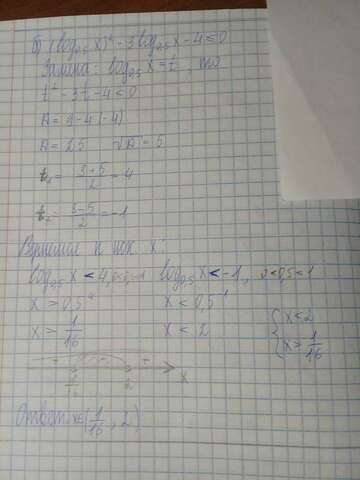 б) (log₀,₅ x)² - 3log₀,₅ x - 4 ≤ 0
Замена: log₀,₅ x = t, то
t² - 3t - 4 ≤ 0
D = 9 - 4(-4)
D = 25 √D = 5
t₁ = 3-5/2 = 4
t₂ = 3-5/2 = -1
Вернемся к пок x:
log₀,₅ x < 4, 0<0,5<1 log₀,₅ x < -1, 0<0,5<1
x > 0,5⁴ x < 0,5⁻¹
x > 1/16 x < 2 { x < 2
x > 1/16
1/16 2 x
Ответ: x∈(1/16, 2)